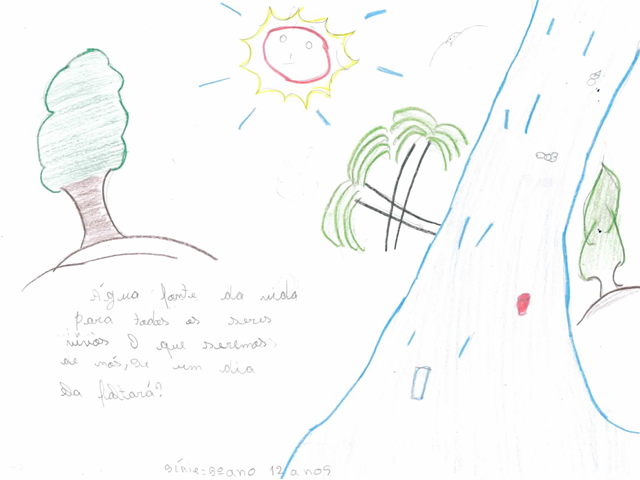 Água fonte da vida
para todos os seres
vivos O que seremos
de nós, se um dia
Ela faltará?
série = 8º ano 12 anos